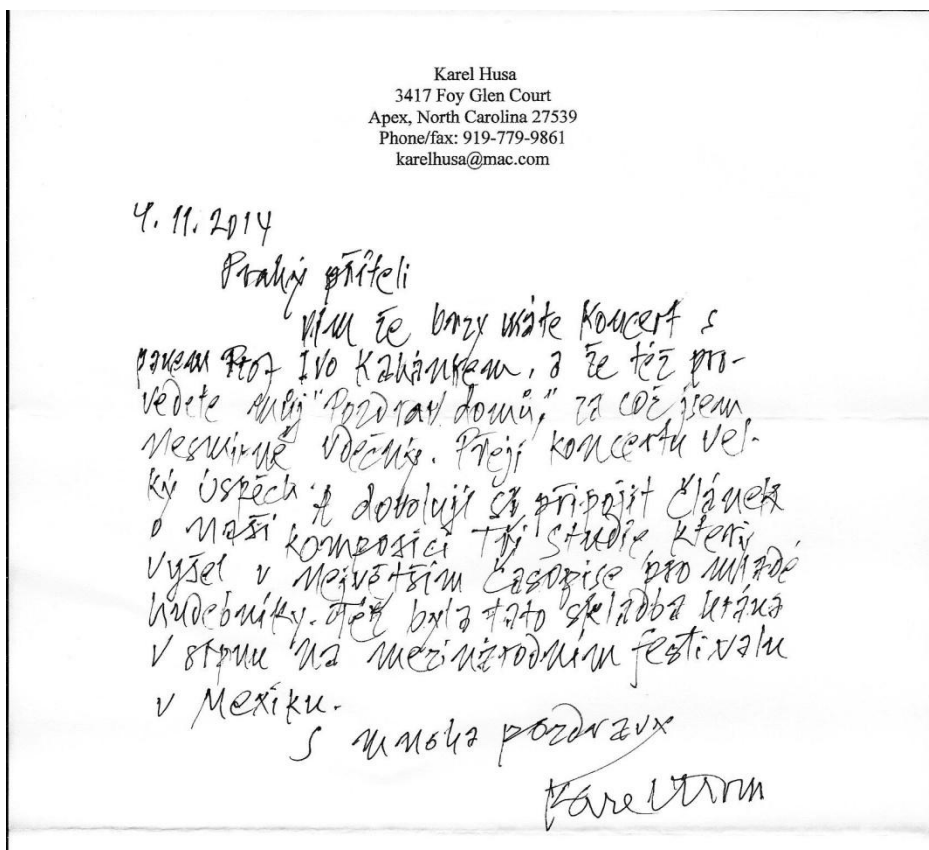 Karel Husa
3417 Foy Glen Court
Apex, North Carolina 27539
Phone/fax: 919-779-9861
karelhusa@mac.com
4. 11. 2014
Drahý příteli
vím že brzy máte Koncert s
panem Prof Ivo Kahánkem, a že též pro-
vedete můj "Pozdrav domů," za což jsem
nesmírně vděčný. Přeji koncertu vel-
ký úspěch. A dovoluji si připojit článek
o naší komposici Tři studie který
vyšel v největším časopise pro mladé
hudebníky. Též byla tato skladba hrána
v srpnu na mezinárodním festivalu
v Mexiku.
S mnoha pozdravy
Karel Husa